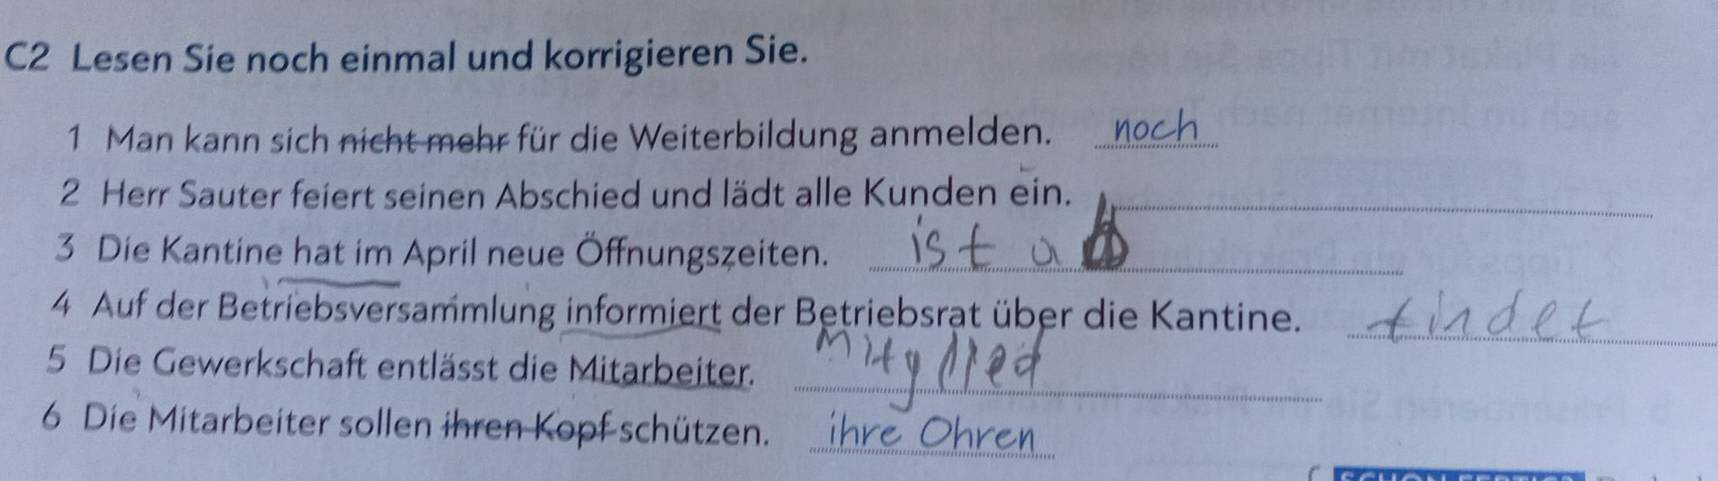 C2 Lesen Sie noch einmal und korrigieren Sie.
1 Man kann sich nicht mehr für die Weiterbildung anmelden. noch
2 Herr Sauter feiert seinen Abschied und lädt alle Kunden ein.
3 Die Kantine hat im April neue Öffnungszeiten. ist a
4 Auf der Betriebsversammlung informiert der Betriebsrat über die Kantine. findet
5 Die Gewerkschaft entlässt die Mitarbeiter. Mitglied
6 Die Mitarbeiter sollen ihren Kopf schützen. ihre Ohren